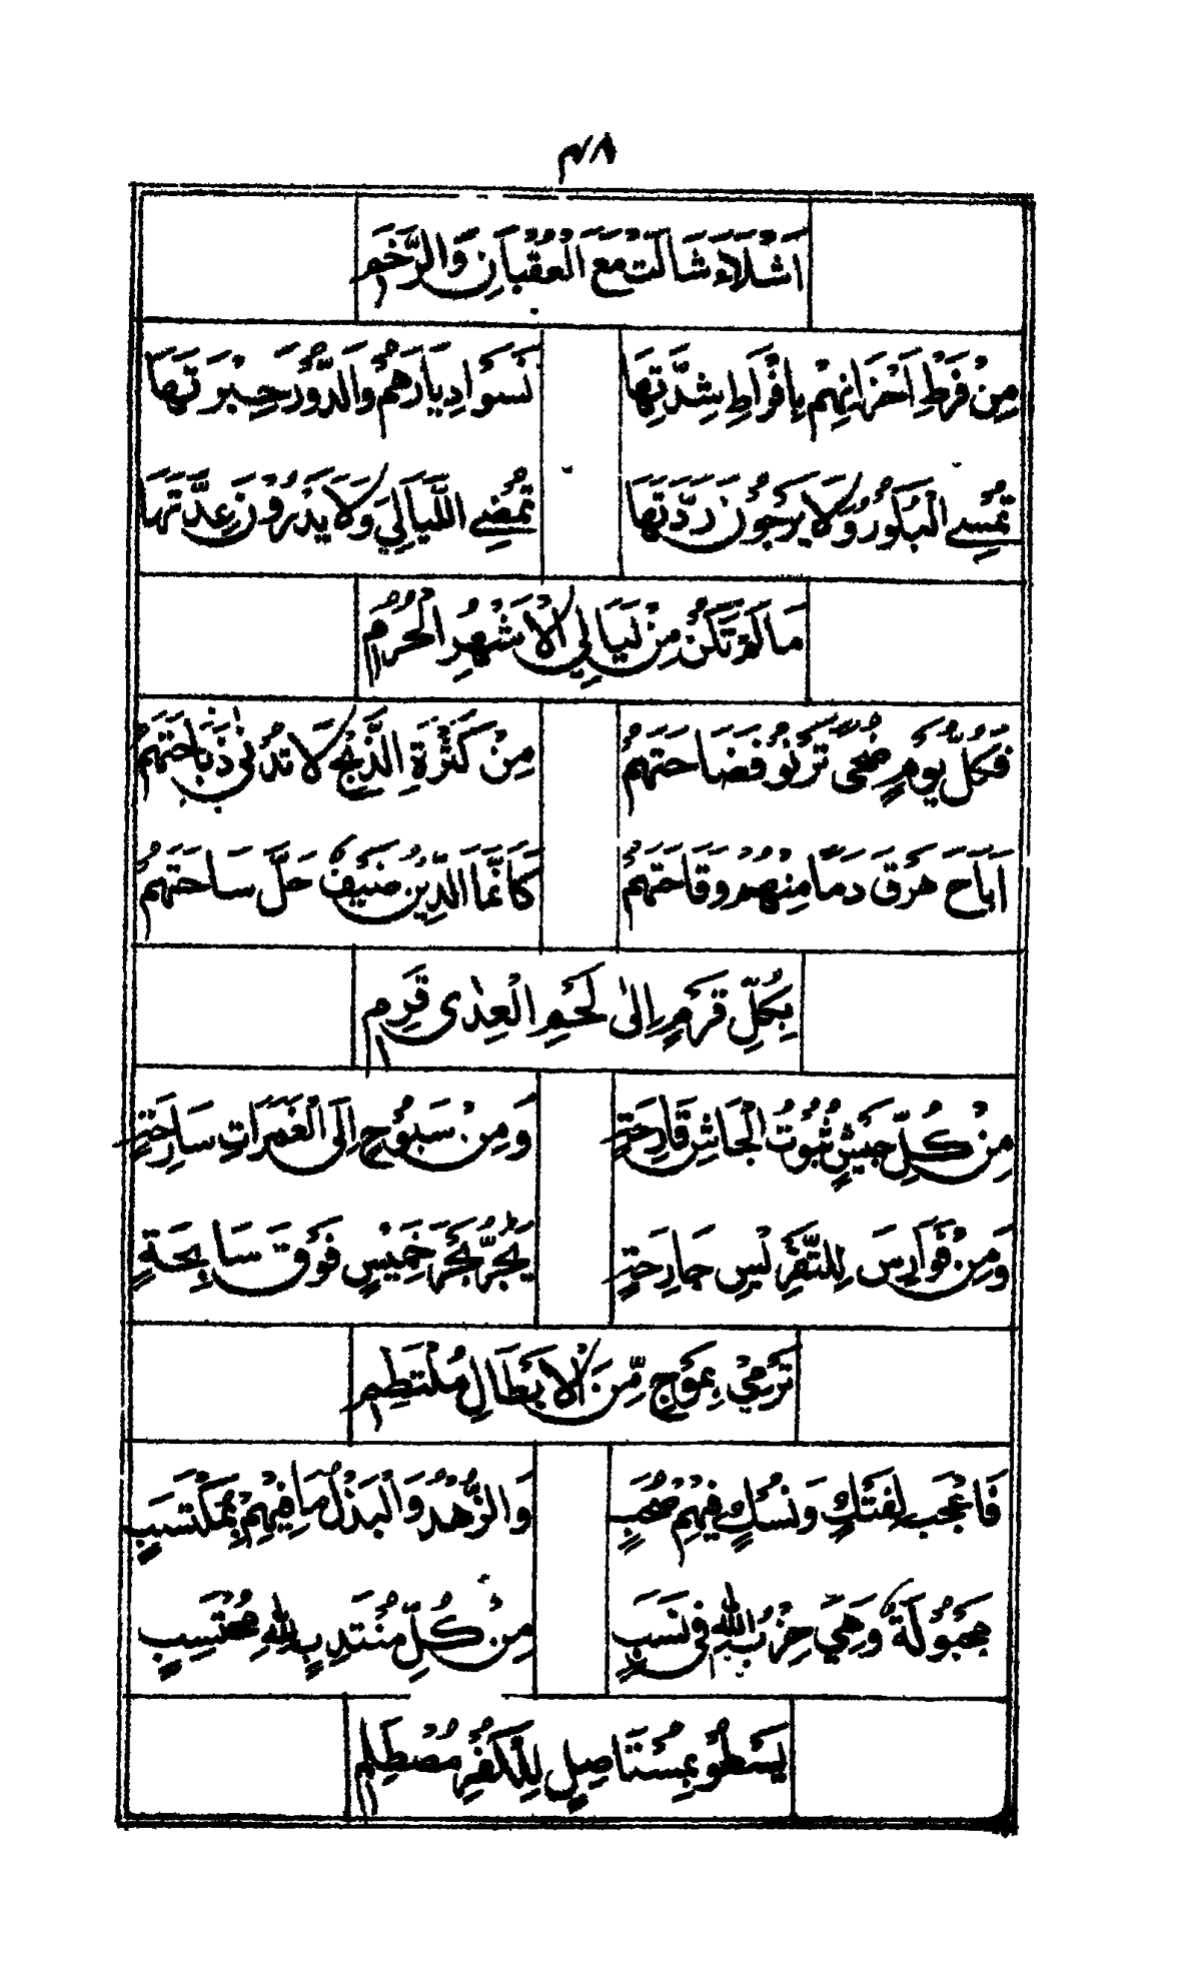 ٤٨
اَشْلَاءَ شَالَتْ مَعَ الْعُقْبَانِ وَالرَّخَمِ
مِنْ فَرْطِ اَحْزَانِهِمْ بِاِفْرَاطِ شِدَّتِهَا نَسَوْا دِيَارَهُمْ وَالدُّوْرُ حِبْرَتَهَا
تُمْسِي الْبُكُوْرُ وَلَا يَرْجُوْنَ رَدَّتَهَا تَمْضِي اللَّيَالِيْ وَلَا يَدْرُوْنَ عِدَّتَهَا
مَا لَمْ تَكُنْ مِنْ لَيَالِي الْاَشْهُرِ الْحُرُمِ
فَكُلَّ يَوْمٍ ضُحًى تَرْنُوْ فَضَاحَتَهُمْ مِنْ كَثْرَةِ الذَّبْحِ لَا تَدْنِيْ ذَبَاحَتَهُمْ
اَبَاحَ هَرْقَ دَمًا مِنْهُمْ وَقَاحَتَهُمْ كَاَنَّمَا الدِّيْنُ ضَيْفٌ حَلَّ سَاحَتَهُمْ
بِكُلِّ قَرْمٍ اِلٰى لَحْمِ الْعِدٰى قَرِمِ
مِنْ كُلِّ جَيْشٍ ثُبُوْتُ الْجَاشِ قَارِحَةٍ وَمِنْ سَبُوْحٍ اِلَى الْغَمَرَاتِ سَارِحَةٍ
وَمِنْ فَوَارِسَ لِلتَّفْرِيْسِ جَارِحَةٍ يَجُرُّ بَحْرَ خَمِيْسٍ فَوْقَ سَابِحَةٍ
تَرْمِيْ بِمَوْجٍ مِّنَ الْاَبْطَالِ مُلْتَطِمِ
فَاعْجَبْ لِفَتْكٍ وَنُسْكٍ فِيْهِمْ صَحَبٍ وَالزُّهْدُ وَالْبَذْلُ مَا فِيْهِمْ بِمُكْتَسَبٍ
مَجْبُوْلَةٌ وَهِيَ حِزْبُ اللّٰهِ فِيْ نَسَبٍ مِنْ كُلِّ مُنْتَدِبٍ لِلّٰهِ مُحْتَسِبٍ
يَسْطُوْ بِمُسْتَاصِلٍ لِلْكُفْرِ مُصْطَلِمِ